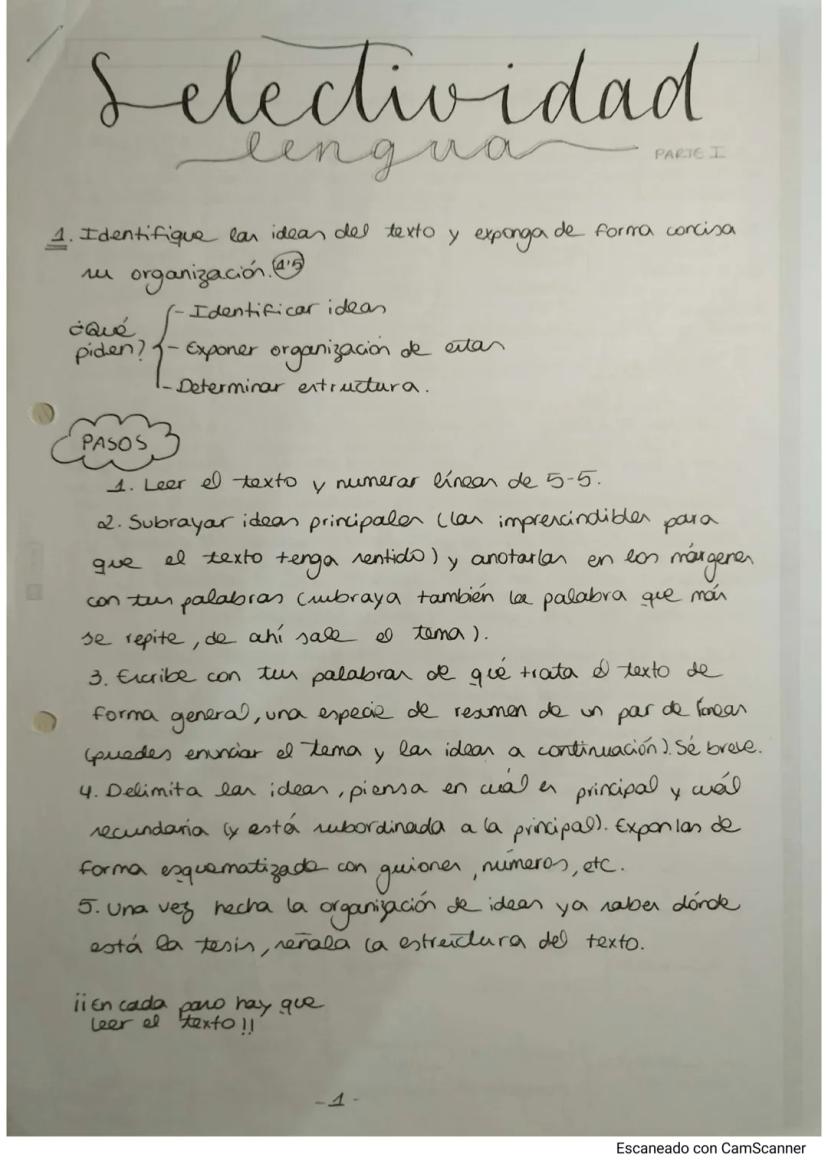 Selectividad
lengua
PARTE I
1. Identifique las ideas del texto y exponga de forma concisa
su organización. (1'5)
¿Qué piden?
- Identificar ideas
- Exponer organización de estas
- Determinar estructura.
PASOS
1. Leer el texto y numerar líneas de 5-5.
2. Subrayar ideas principales (las imprescindibles para
que el texto tenga sentido) y anotarlas en los márgenes
con tus palabras (subraya también la palabra que más
se repite, de ahí sale el tema).
3. Escribe con tus palabras de qué trata el texto de
forma general, una especie de resumen de un par de líneas
(puedes enunciar el tema y las ideas a continuación). Sé breve.
4. Delimita las ideas, piensa en cuál es principal y cuál
secundaria (y está subordinada a la principal). Exponlas de
forma esquematizada con guiones, números, etc.
5. Una vez hecha la organización de ideas ya sabes dónde
está la tesis, señala la estructura del texto.
¡¡En cada paso hay que
leer el texto!!
-1-
Escaneado con CamScanner